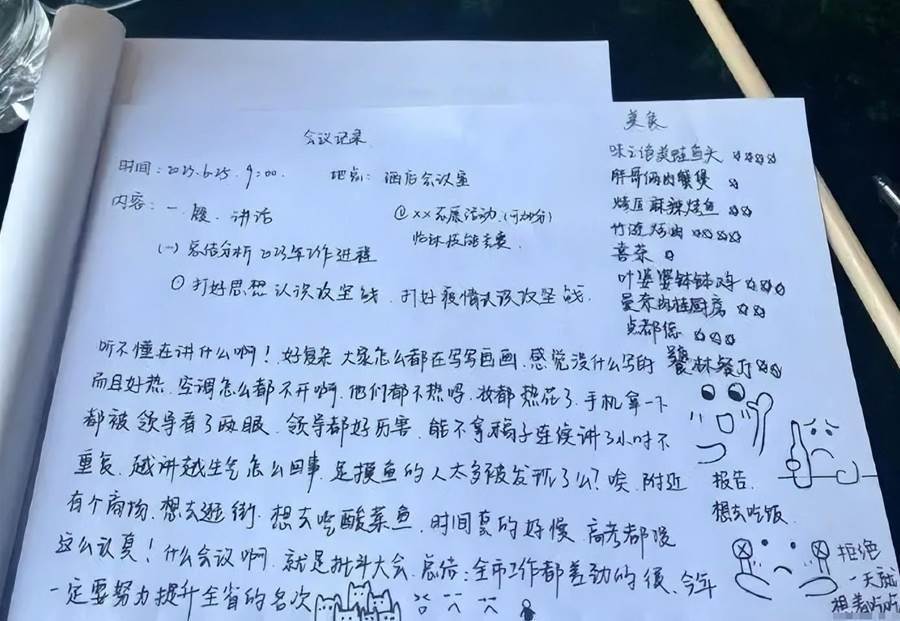 会议记录
时间：2023.6.25. 9:00. 地点：酒店会议室
内容：一 段. 讲话
(一) 总结分析2023年工作进程
① 打好思想认识攻坚战. 打好疫情认识攻坚战.
② xx 志愿活动.(可加分)
临床技能竞赛.
听不懂在讲什么啊！好复杂 大家怎么都在写写画画. 感觉没什么写的
而且好热. 空调怎么都不开啊. 他们都不热吗. 妆都热花了. 手机拿一下
都被领导看了两眼. 领导都好厉害. 能不拿稿子连续讲了小时不
重复. 越讲越生气怎么回事. 是摸鱼的人太多被发现了么？唉. 附近
有个商场. 想去逛街. 想去吃酸菜鱼. 时间真的好慢. 高考都没
这么认真！什么会议啊. 就是批斗大会. 总结：全市工作都差劲的很. 今年
一定要努力提升全省的名次
美食
味之 鱼头
胖哥俩肉蟹煲
烤匠麻辣烤鱼
竹 烤肉
喜茶
叶婆婆钵钵鸡
曼 厨房
点都德
餐厅
报告.
想去吃饭.
拒绝
一天就
想着吃吃